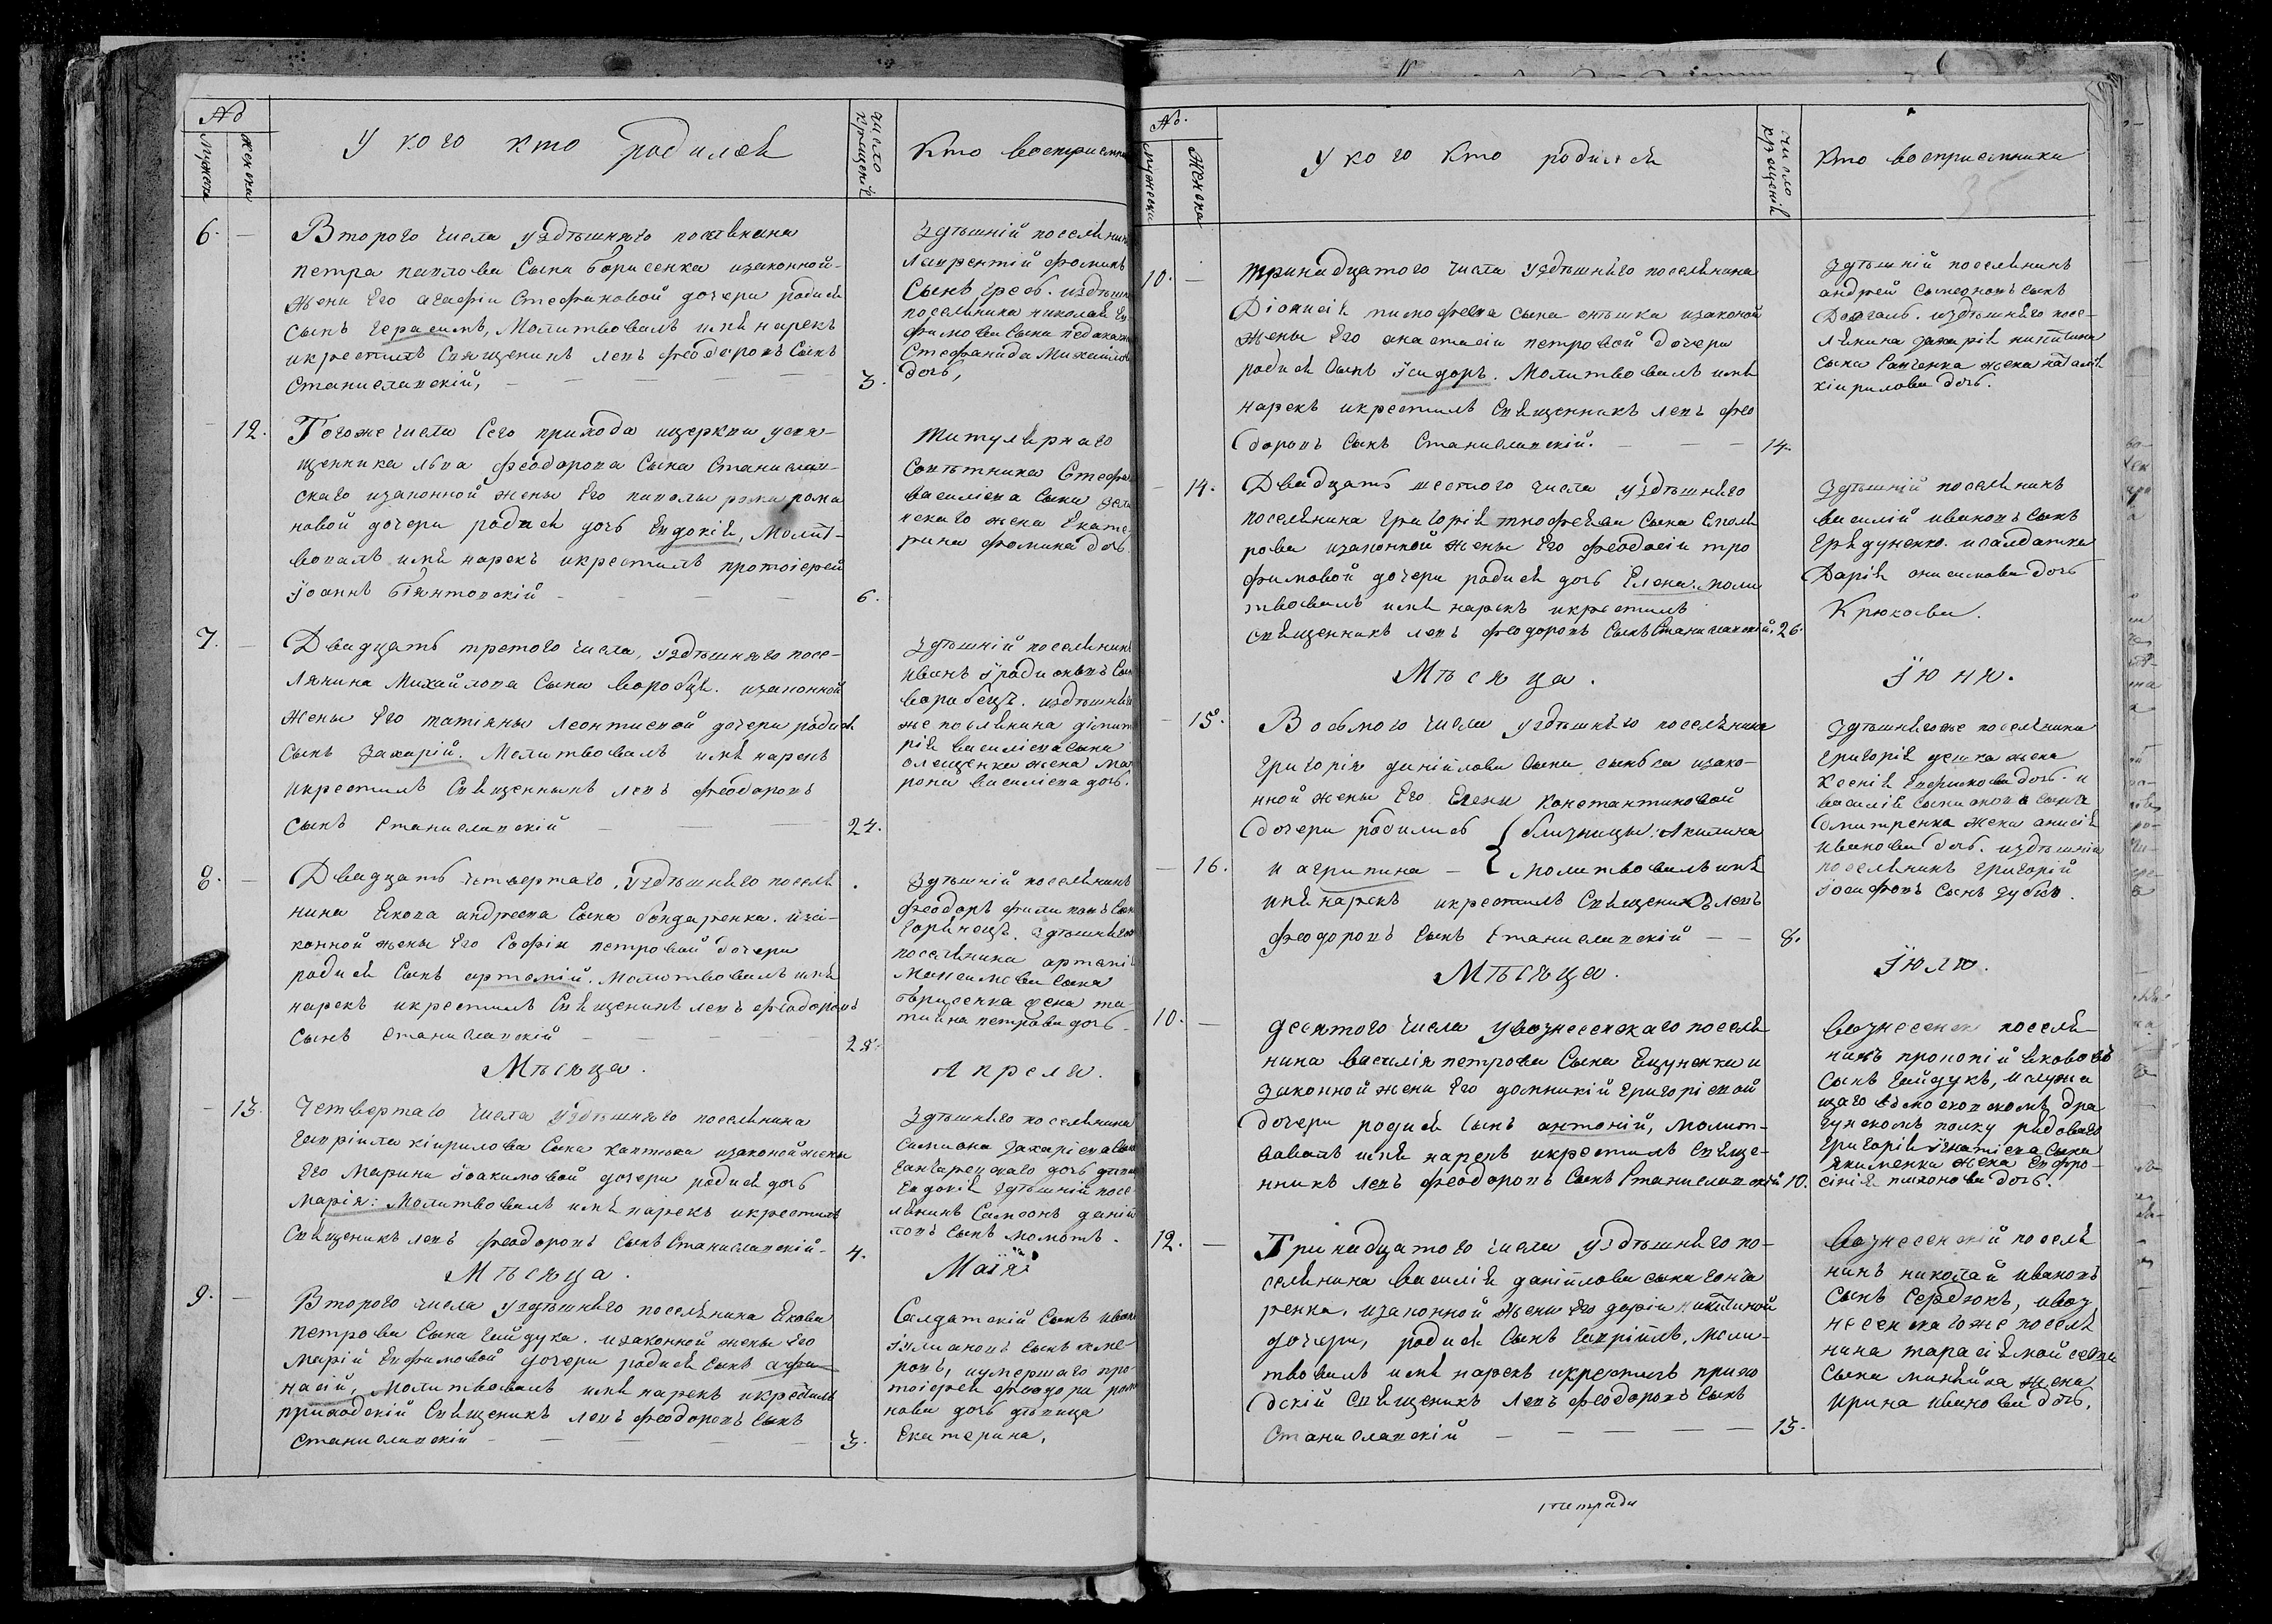 №
Мужеск
Женска
У кого кто родился
число крещенія
Кто восприемни
6.
Второго числа у здѣшняго поселянина
петра павлова сына борисенка изаконной
жены его агафіи Стефановой дочери родися
сынъ герасимъ, Молитвовалъ имя нарекъ
икрестилъ Священикъ левъ феодоровъ сынъ
Станиславскій,
3.
Здѣшній поселянин
лаврентій фоминъ
Сынъ греб. издѣшня
поселянина николая
фимова сына
Стефанида Михайло
дочь,
12.
Тогоже числа Сего прихода ицеркви усвя-
щенника льва феодорова сына Станислав-
скаго изаконной жены его рома
новой дочери родися дочь Евдокія, Молит-
вовалъ имя нарекъ икрестилъ протоіерей
Іоаннъ бѣянтовскій
6.
титулярнаго
Совѣтника Стефа
василіева сына
скаго жена Екате-
рина фомина дочь
7.
Двадцать третого числа, уздѣшняго посе-
лянина Михайлова сына воробца. изаконной
жены его татіяны леонтиевой дочери родися
сынъ Захарій. Молитвовалъ имя нарекъ
икрестилъ Священникъ левъ феодоровъ
сынъ Станиславскій
24.
Здѣшній поселянинъ
иванъ сын
воробецъ. издѣшняго
же поселянина димит
рія василіева сына
олещенка жена Мат
рона василіева дочь.
8.
Двадцать четвертаго, уздѣшняго поселя
нина Якова андреева сына бондаренка. иза-
конной жены его Софіи петровой дочери
родися сынъ артемій. Молитвовалъ имя
нарекъ икрестилъ Священикъ левъ феодоровъ
сынъ Станиславскій
25.
Здѣшній поселянинъ
феодоръ филиповъ сын
горинецъ. Здѣшняго
поселянина артемія
Максимова сына
борисенка жена та-
тияна петрова дочь.
Мѣсяца.
Апреля.
13.
Четвертаго числа уздѣшняго поселянина
гавріила кирилова сына каптюха изаконой жены
его Марины Іоакимовой дочери родися дочь
Марія: Молитвовалъ имя нарекъ икрестилъ
Священикъ левъ феодоровъ сынъ Станиславскій.
4.
Здѣшняго поселянина
симиона Захаріева сын
гончаренкаго дочь
Евдокія здѣшній посе-
лянинъ Самсонъ даній
ловъ сынъ момотъ.
Мѣсяца.
Маія
9.
Второго числа уздѣшняго поселянина Якова
петрова сына гайдука. изаконной жены его
Маріи Евфимовой дочери родися сынъ афа-
насій, Молитвовалъ имя нарекъ икрестилъ
приходскій Священикъ левъ феодоровъ сынъ
Станиславскій
3.
Салдатскій сынъ иван
сынъ
ровъ, иумершаго про
тоіерея феодора рома
нова дочь дѣвица
Екатерина.
№.
Мужеска
Женска
У кого Кто родился
Число крещенія
Кто восприемники
10.
Тринадцатого числа уздѣшняго поселянина
Діонисія тимофеева сына онышка изаконой
жены его анастасіи петровой дочери
родися сынъ Ісидоръ. Молитвовалъ имя
нарекъ икрестилъ Священникъ левъ фео
доровъ сынъ Станиславскій.
14.
Здѣшній поселянинъ
андрей симеоновъ сынъ
Довгаль. издѣшняго посе-
лянина Захарія никитина
сына савченка жена наталія
кирилова дочь.
14.
Двадцать шестого числа уздѣшняго
поселянина григорія сына столя
рова изаконной жены его феодосіи тро
фимовой дочери родися дочь Елена. моли
твовалъ имя нарекъ икрестилъ
священникъ левъ феодоровъ сынъ Станиславскій.
26.
Здѣшній поселянинъ
василій ивановъ сынъ
гридуненко. исалдатка
Дарія онисимова дочь
Крюкова.
Мѣсяца.
Іюня.
15.
Восьмого числа уздѣшняго поселянина
григорія даніилова сына изако-
нной жены его Елены Константиновой
дочери родились близницы: Акилина
16.
и агрипина — молитвовалъ имя
имя нарекъ икрестилъ Священикъ левъ
феодоровъ сынъ Станиславскій
8.
Здѣшнягоже поселянина
григорія жена
Ксенія Евфимова дочь. и
василія сына
дмитренка жена анисія
иванова дочь. издѣшній
поселянинъ григорій
Іосифовъ сынъ зубко.
Мѣсяца.
Іюля.
10.
десятого числа увознесенскаго поселя
нина василія петрова сына и
Законной жены его домникіи григоріевой
дочери родися сынъ антоній, Молит-
вовалъ имя нарекъ икрестилъ Свяще-
нникъ левъ феодоровъ сынъ Станиславскій
10.
вознесенск поселя
нинъ прокопій яковлевъ
сынъ гайдукъ, ислужа
щаго въмосковскомъ дра
гунскомъ полку рядоваго
григорія игнатіева сына
якименка жена Евфро-
сінія тихонова дочь.
12.
Тринадцатого числа уздѣшняго по-
селянина василія даніилова сына гонча
ренка. изаконной жены его даріи никитиной
дочери, родися сынъ гавріилъ. Моли-
твовалъ имя нарекъ икрестилъ прихо
дскій Священикъ левъ феодоровъ сынъ
Станиславскій
13.
вознесенскій поселя
нинъ николай ивановъ
сынъ сердюкъ, ивоз
несенскагоже поселя
нина тарасія
сына жена
Ирина иванова дочь.
тетради